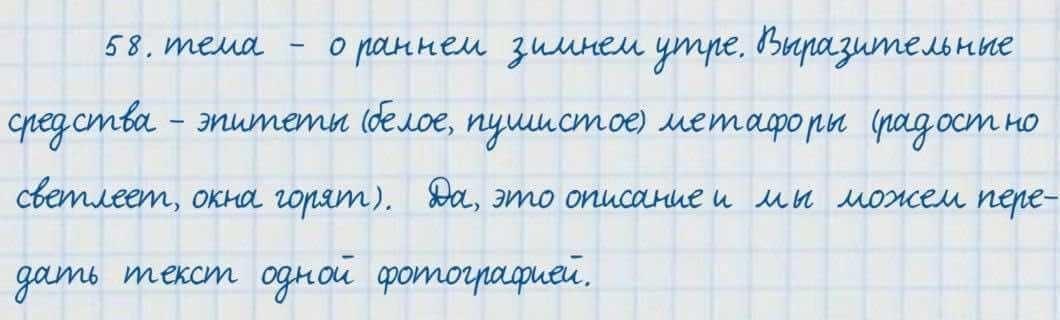 58. тема - о раннем зимнем утре. Выразительные
средства - эпитеты (белое, пушистое) метафоры (радостно
светлеет, окна горят). Да, это описание и мы можем пере-
дать текст одной фотографией.